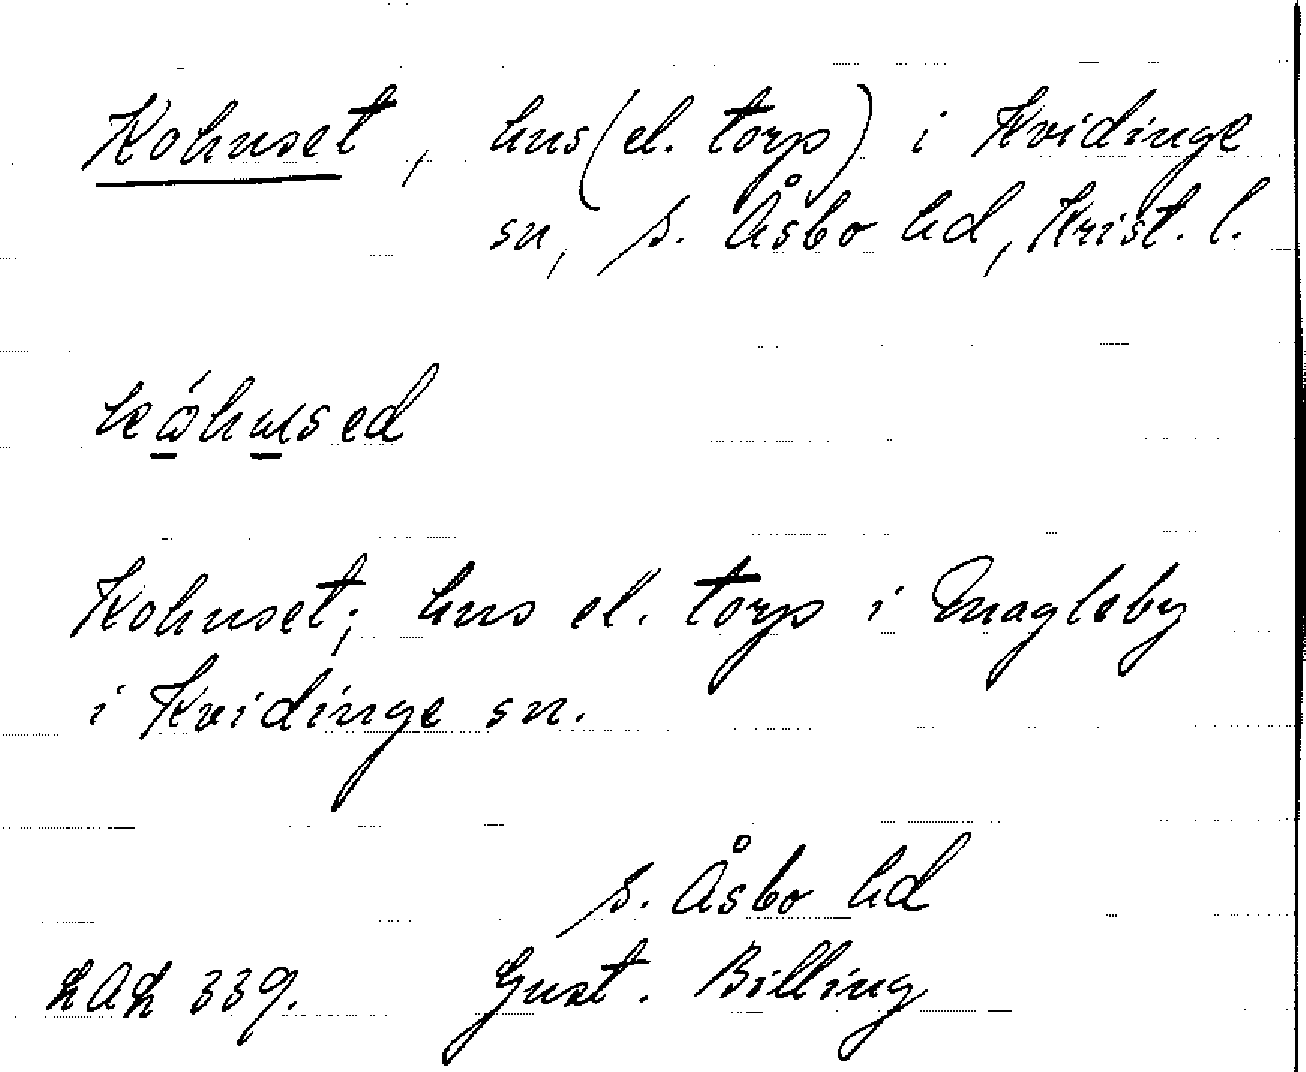 Kohuset, hus (el. torp) i Kvidinge
sn, S. Åsbo hd, Krist. l.
Kohuset; hus el. torp i Magleby
i Kvidinge sn.
S. Åsbo hd
LAL 339. Gust. Billing